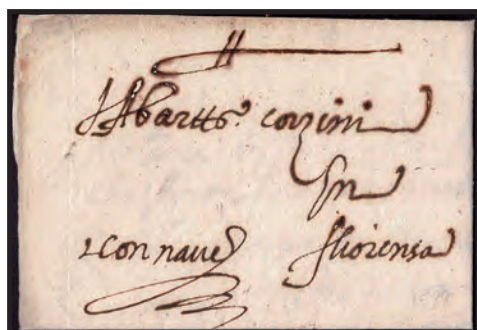 Bartto. corzini
In
con nave fiorensa